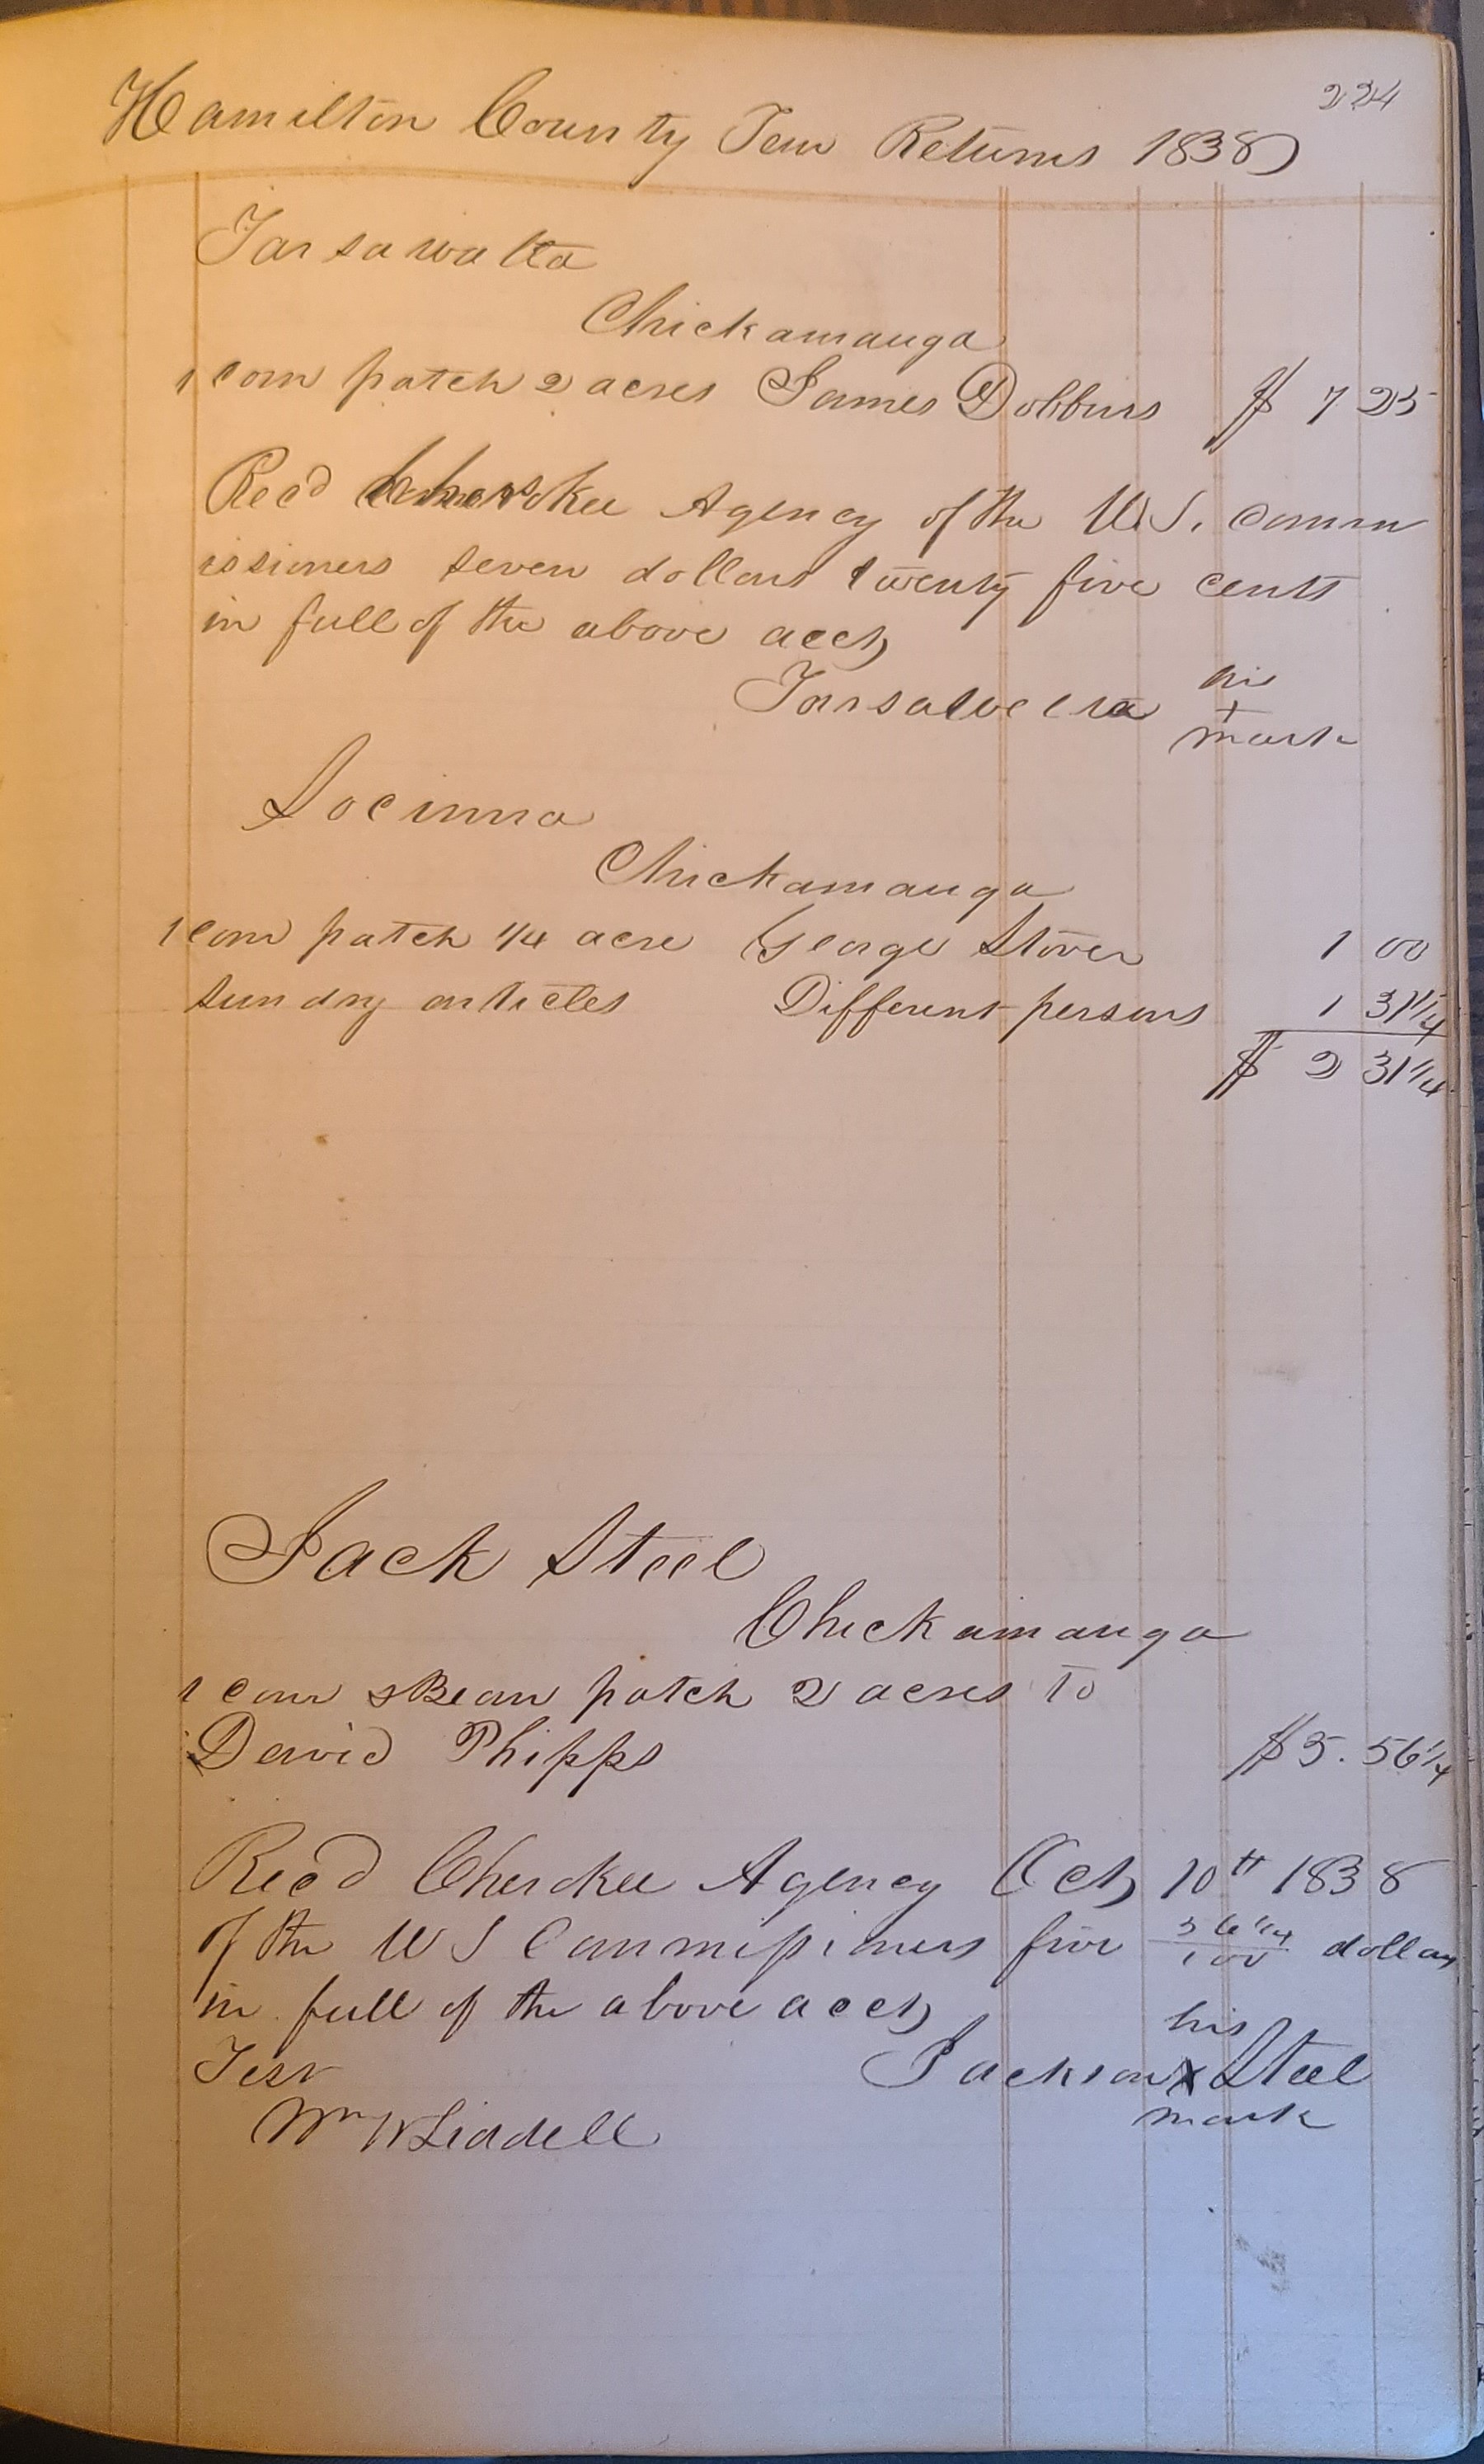 224
Hamilton County Ten Returns 1838
Tarsawatta
Chickamauga
1 corn patch 2 acres James Dobbins $ 7 25
Recd Cherokee Agency of the U.S. comm
issioners seven dollars twenty five cents
in full of the above acct
his
+
mark
Socinna
Chickamauga
1 corn patch 1/4 acre George Stover 1 00
sundry articles Different persons 1 31 1/4
$ 2 31 1/4
Jack Steel
Chickamauga
1 corn & Bean patch 2 acres to
David Phipps $5. 56 1/4
Recd Cherokee Agency Oct 10th 1838
of the U S Commissioners five 56 1/4 / 100 dollars
in full of the above acct
his
Test Jackson X Steel
mark
Wm W Liddell